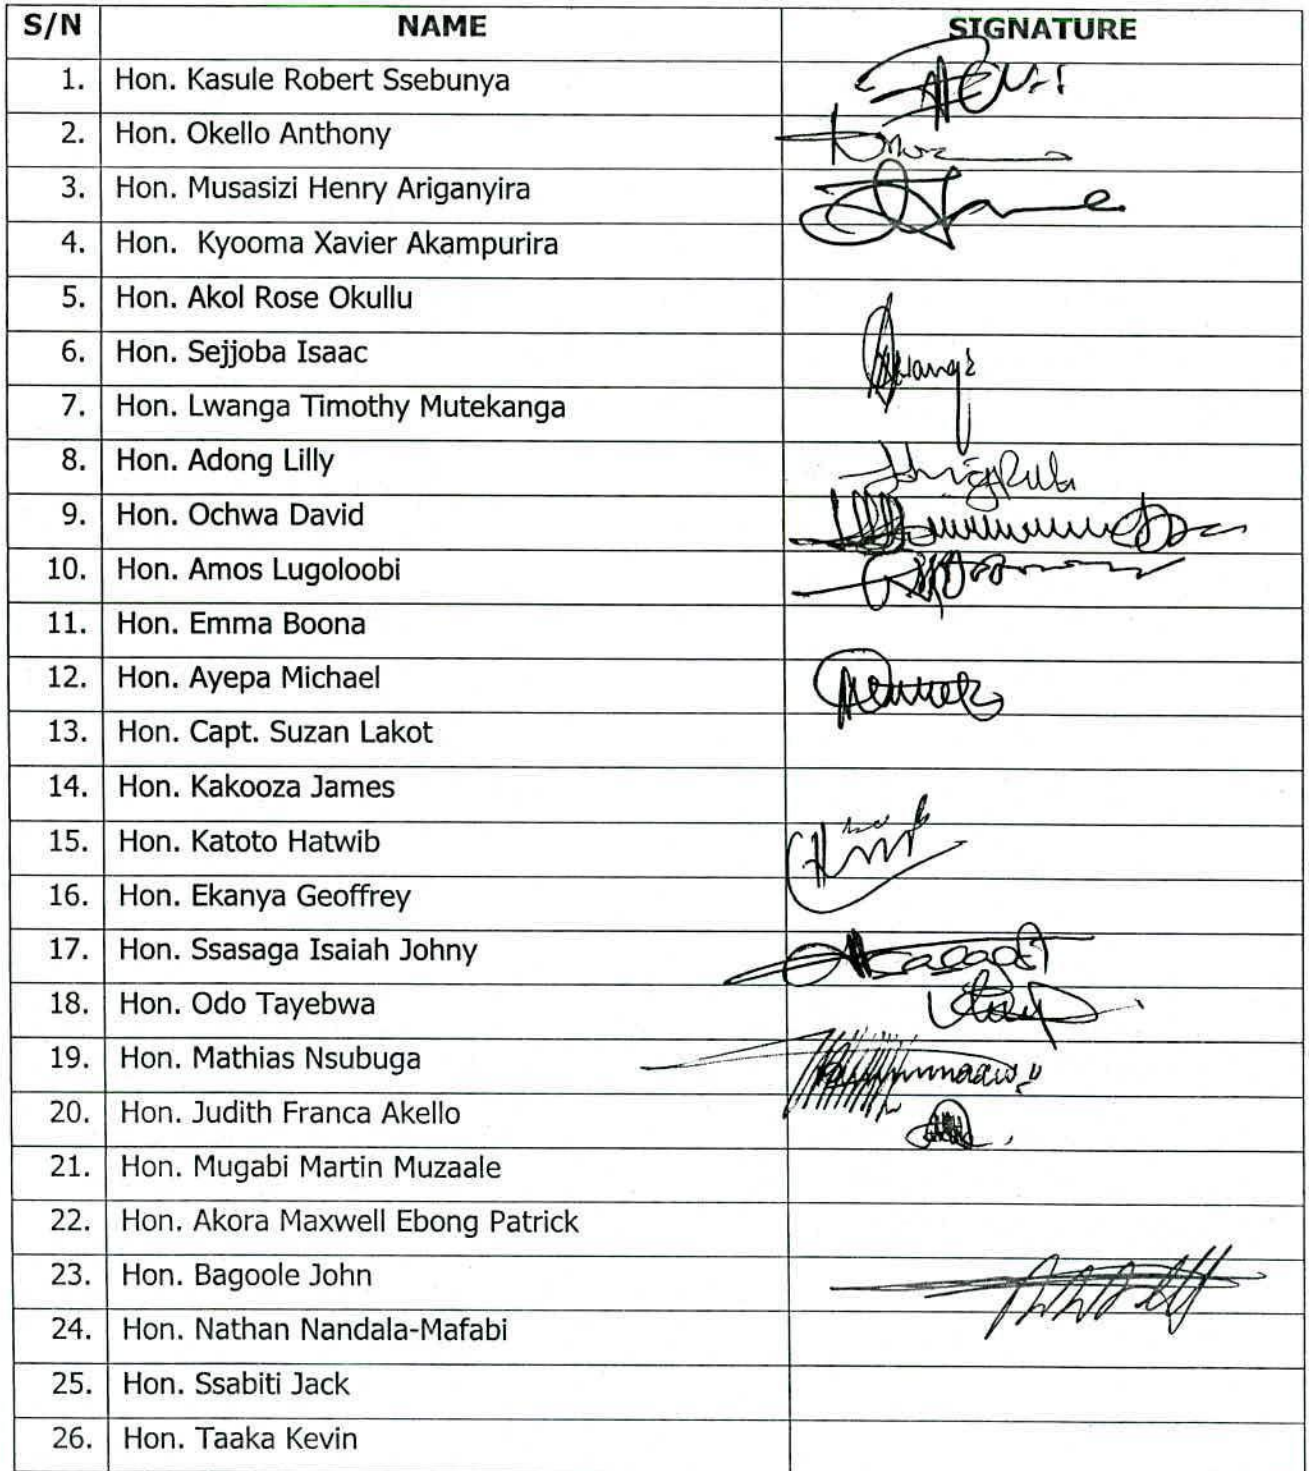 S/N NAME SIGNATURE
1. Hon. Kasule Robert Ssebunya
2. Hon. Okello Anthony
3. Hon. Musasizi Henry Ariganyira
4. Hon. Kyooma Xavier Akampurira
5. Hon. Akol Rose Okullu
6. Hon. Sejjoba Isaac
7. Hon. Lwanga Timothy Mutekanga
8. Hon. Adong Lilly
9. Hon. Ochwa David
10. Hon. Amos Lugoloobi
11. Hon. Emma Boona
12. Hon. Ayepa Michael
13. Hon. Capt. Suzan Lakot
14. Hon. Kakooza James
15. Hon. Katoto Hatwib
16. Hon. Ekanya Geoffrey
17. Hon. Ssasaga Isaiah Johny
18. Hon. Odo Tayebwa
19. Hon. Mathias Nsubuga
20. Hon. Judith Franca Akello
21. Hon. Mugabi Martin Muzaale
22. Hon. Akora Maxwell Ebong Patrick
23. Hon. Bagoole John
24. Hon. Nathan Nandala-Mafabi
25. Hon. Ssabiti Jack
26. Hon. Taaka Kevin